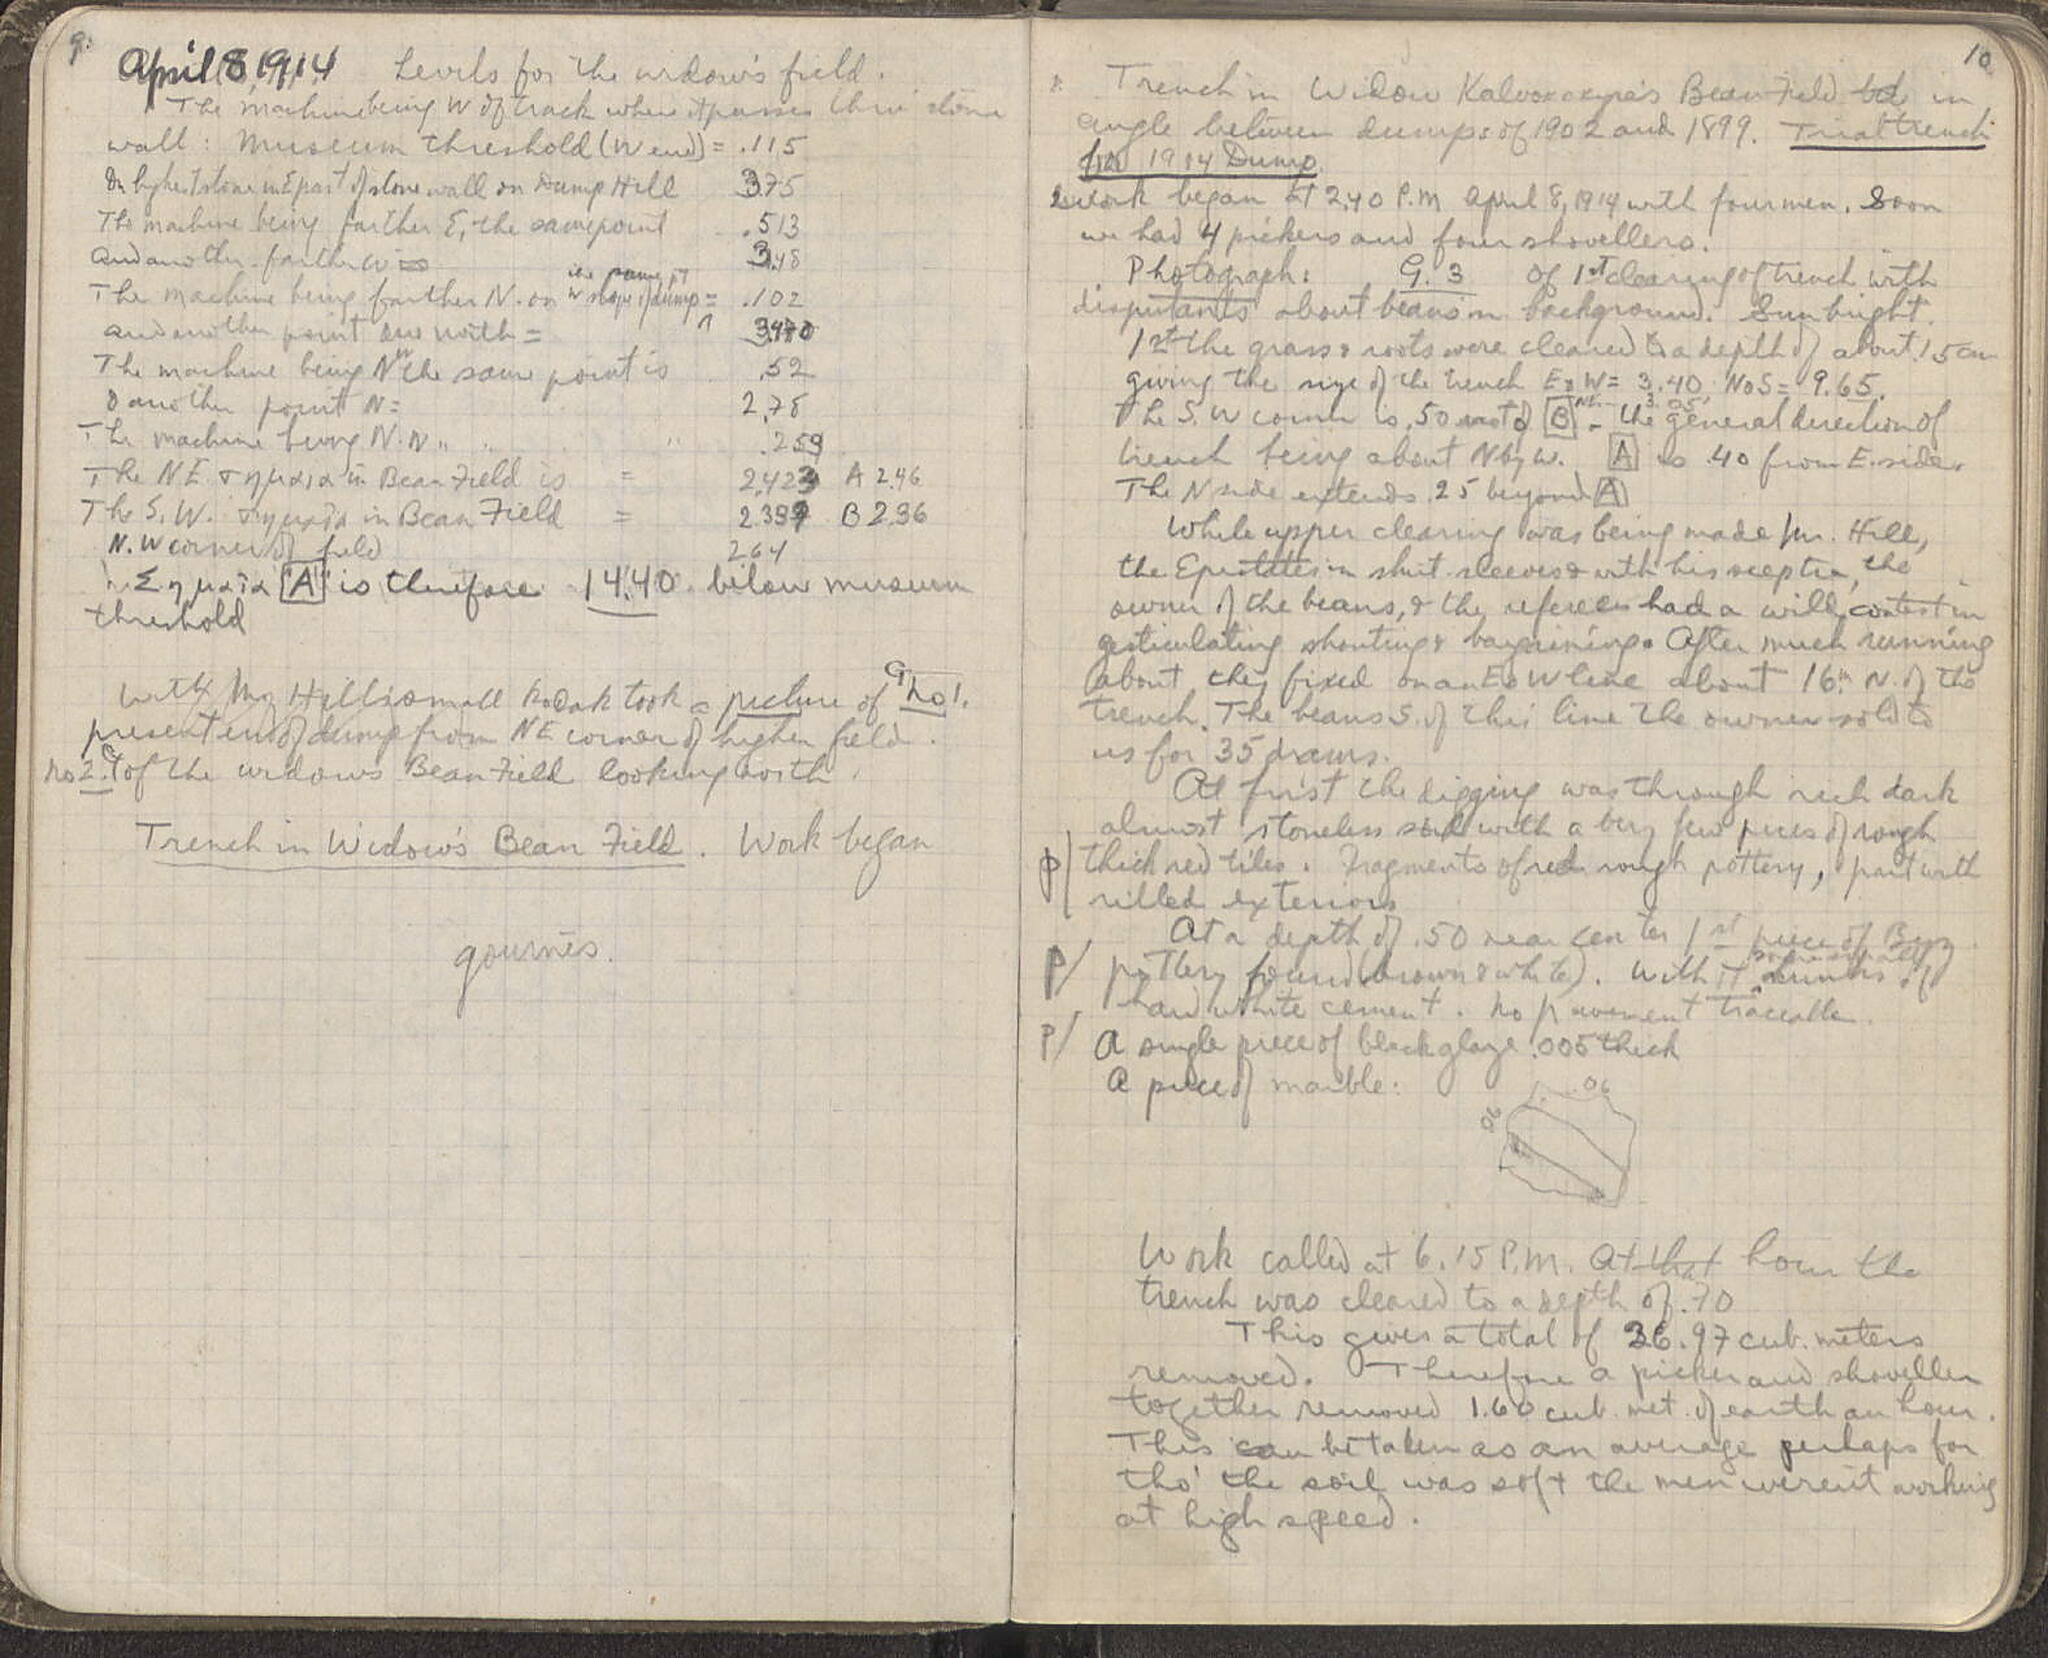 9.
April 8, 1914 Levels for the widow's field.
The machine being W of track where it passes thru stone
wall: Museum threshold (W end) = .115
On highest stone in E part of stone wall on Dump Hill 3.75
The machine being farther E, the same point .513
and another farther W = 3.48
the same pt
The machine being farther N. on W slope of dump = .102
and another point due north = 3.470
The machine being N the same point is .52
& another point N = 2.78
The machine being N. N " " " .259
The NE σημαία in Bean Field is = 2.423 A 2.46
The S.W. σημαία in Bean Field = 2.399 B 2.36
N.W corner of field 2.64
Σημαία "A" is therefore 14.40 below museum
threshold
With Mr Hill's small kodak took a picture of G No 1.
present end of dump from NE corner of higher field.
No 2. G of the widow's Bean Field looking north.
Trench in Widow's Bean Field. Work began
gournès.
10
Trench in Widow Bean Field in
angle between dumps of 1902 and 1899. Trial trench
for 1914 Dump
Work began at 2.40 P.M April 8, 1914 with four men. Soon
we had 4 pickers and four shovellers.
Photograph: G. 3 of 1st clearing of trench with
disputants about beans in background. Sun bright.
1st the grass & roots were cleared to a depth of about .15 cm
giving the size of the trench E & W = 3.40, N & S = 9.65.
NE 3.05
The S.W corner is .50 east of B. the general direction of
trench being about N by W. A is .40 from E. side.
The N side extends .25 beyond A
While upper clearing was being made Mr. Hill,
the Epistates in shirt sleeves & with his sceptre, the
owner of the beans, & the referees had a wild contest in
gesticulating shouting & bargaining. After much running
about they fixed on an E & W line about 16m N. of the
trench. The beans S. of this line the owner sold to
us for 35 dracms.
At first the digging was through rich dark
almost stoneless soil with a very few pieces of rough
p/ thick red tiles. Fragments of red rough pottery, part with
rilled exteriors
At a depth of .50 near center 1st piece of Byz
p/ pottery found (brown & white). With it of
hard white cement. No pavement traceable.
p/ A single piece of black glaze .005 thick
A piece of marble:
.06
.06
Work called at 6.15 P.M. At that hour the
trench was cleared to a depth of .70
This gives a total of 26.97 cub. meters
removed. Therefore a picker and shoveller
together removed 1.60 cub. met. of earth an hour.
This can be taken as an average perhaps for
tho' the soil was soft the men weren't working
at high speed.